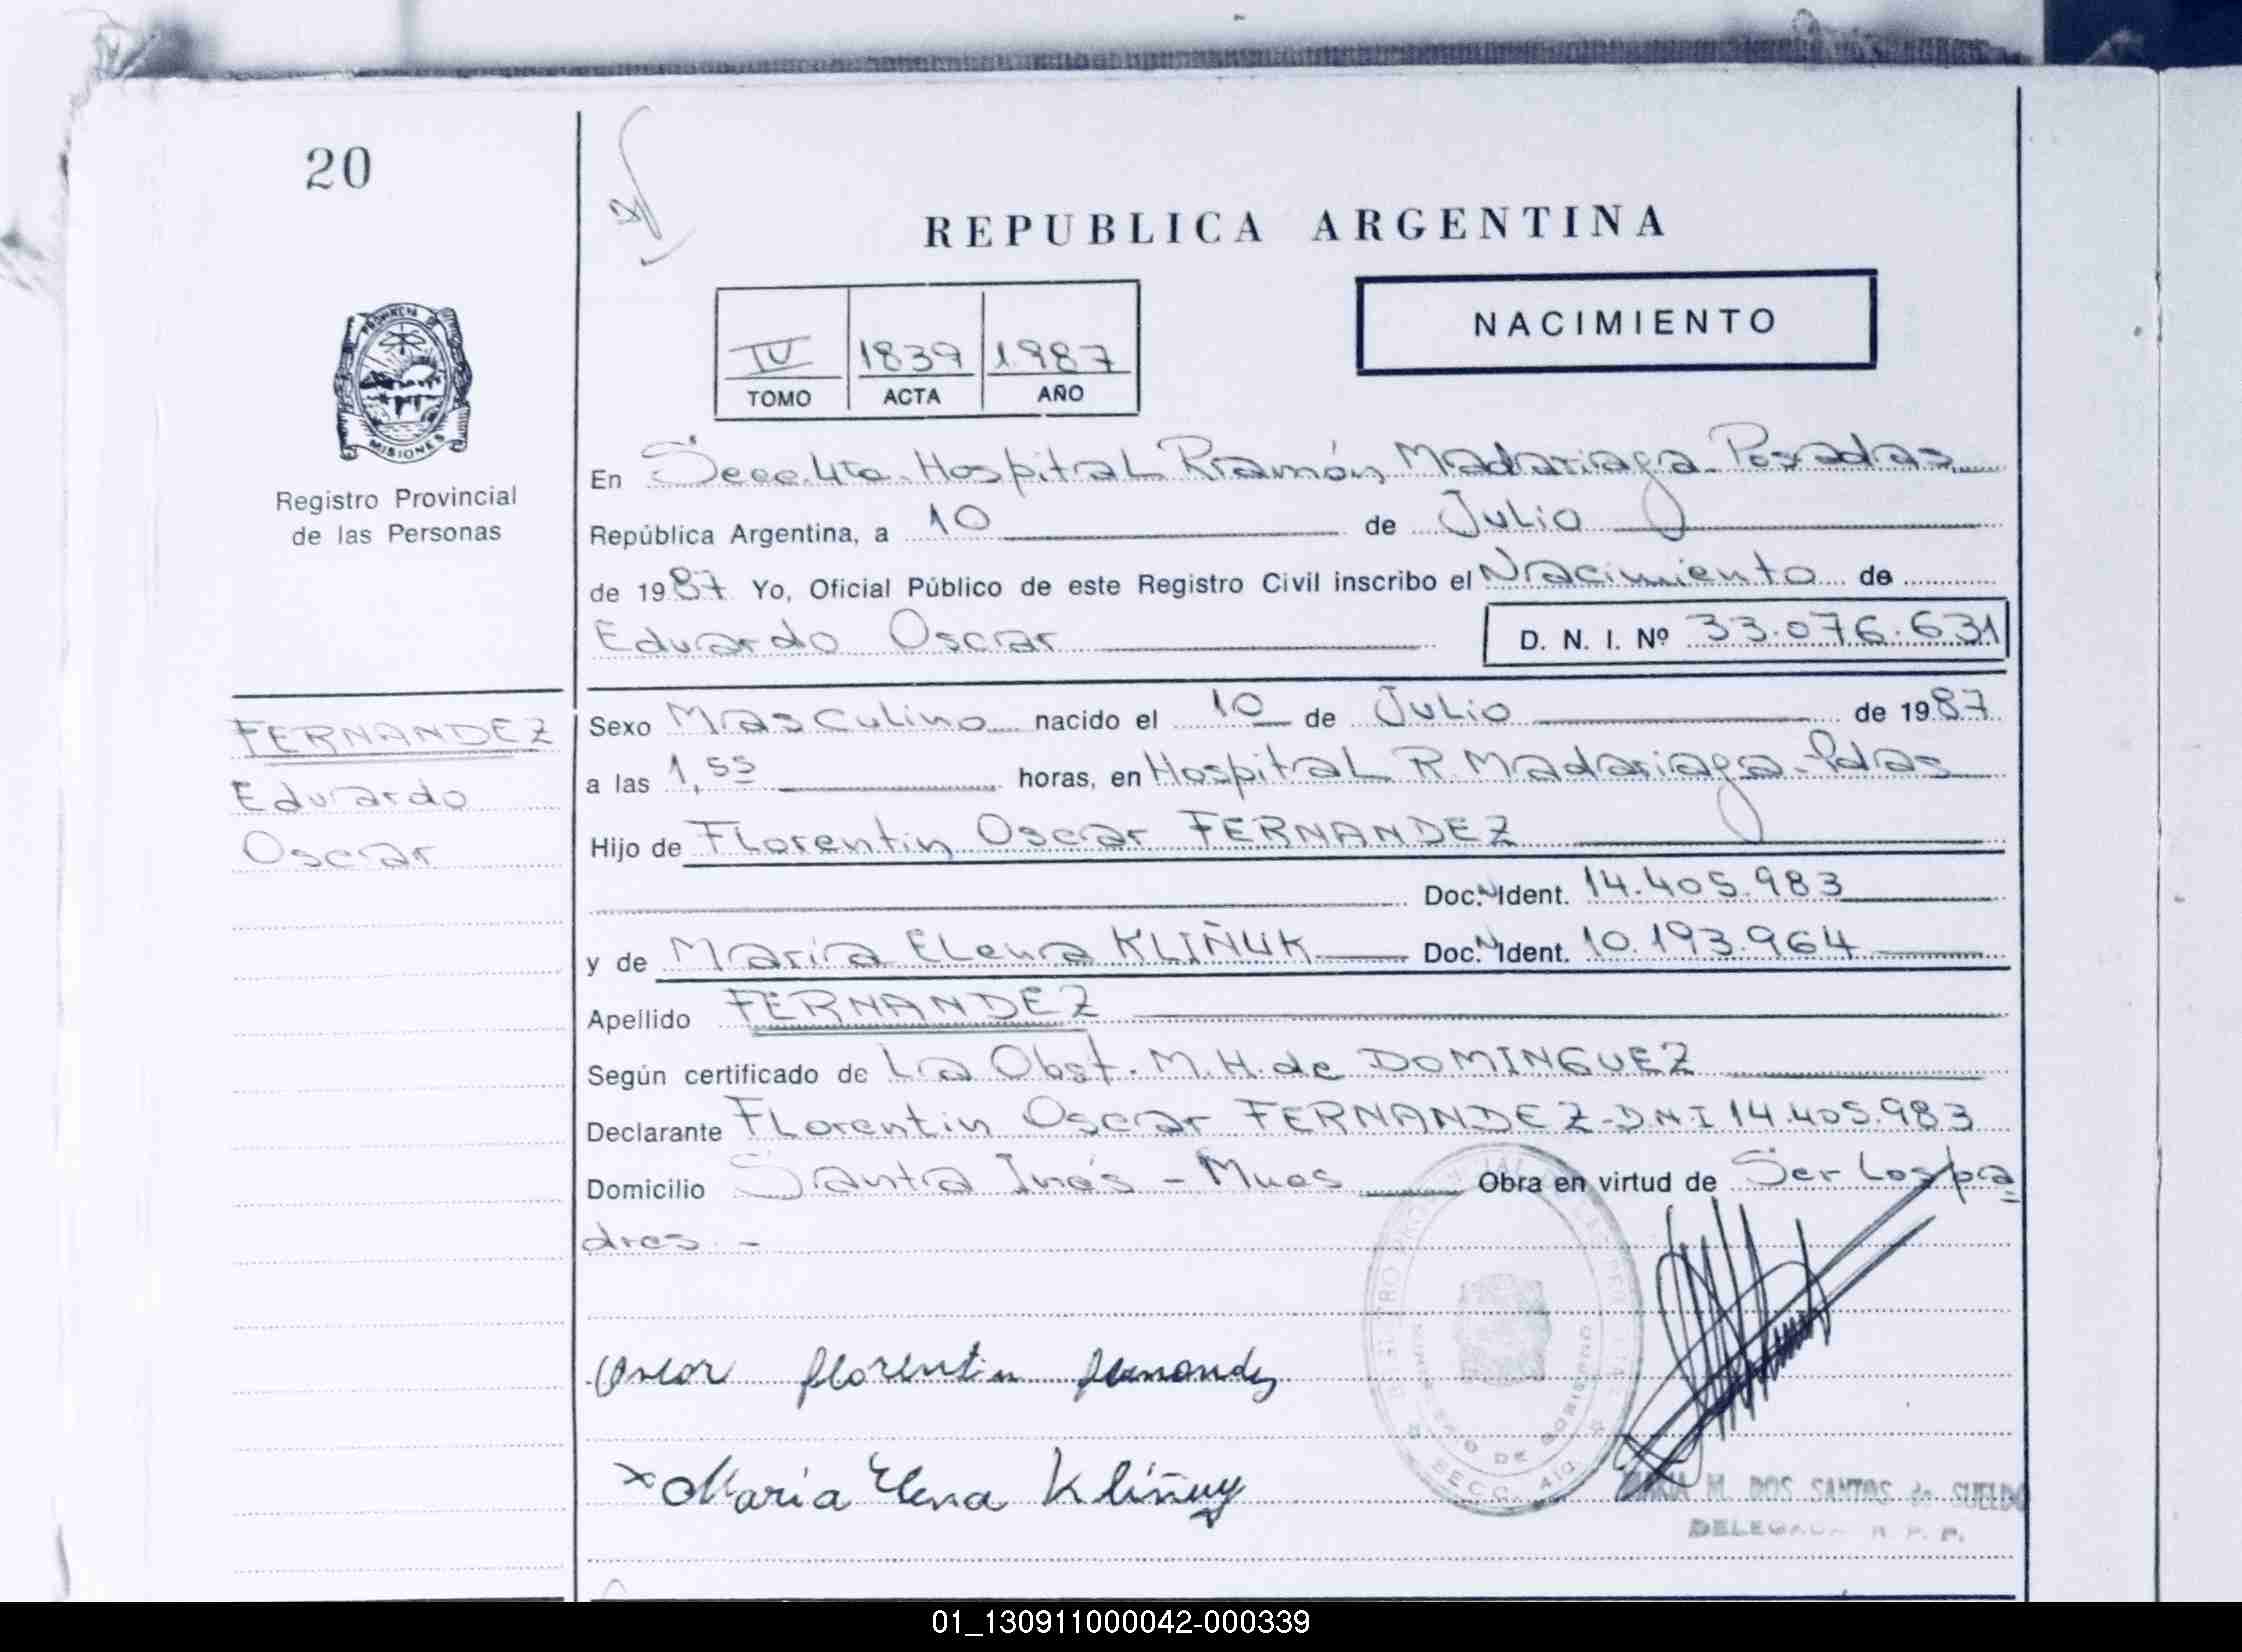 20
REPUBLICA ARGENTINA
NACIMIENTO
IV 1839 1987
TOMO ACTA AÑO
PROVINCIA DE
MISIONES
Registro Provincial
de las Personas
En Secc. 4ta. Hospital Ramón Madariaga Posadas
República Argentina, a 10 de Julio
de 1987 Yo, Oficial Público de este Registro Civil inscribo el Nacimiento de
Eduardo Oscar D. N. I. Nº 33.076.631
FERNANDEZ
Eduardo
Oscar
Sexo Masculino nacido el 10 de Julio de 1987
a las 1,55 horas, en Hospital R. Madariaga - Pdas
Hijo de Florentin Oscar FERNANDEZ
Doc. Ident. 14.405.983
y de María Elena KLIÑUK Doc. Ident. 10.193.964
Apellido FERNANDEZ
Según certificado de La Obst. M. H. de DOMINGUEZ
Declarante Florentin Oscar FERNANDEZ - DNI 14.405.983
Domicilio Santa Inés - Mnes Obra en virtud de Ser los pa
dres -
Oscar florentin fernandez
x Maria Elena Kliñuy
MARIA M. DOS SANTOS de SUELDO
DELEGADA R. P. P.
01_130911000042-000339